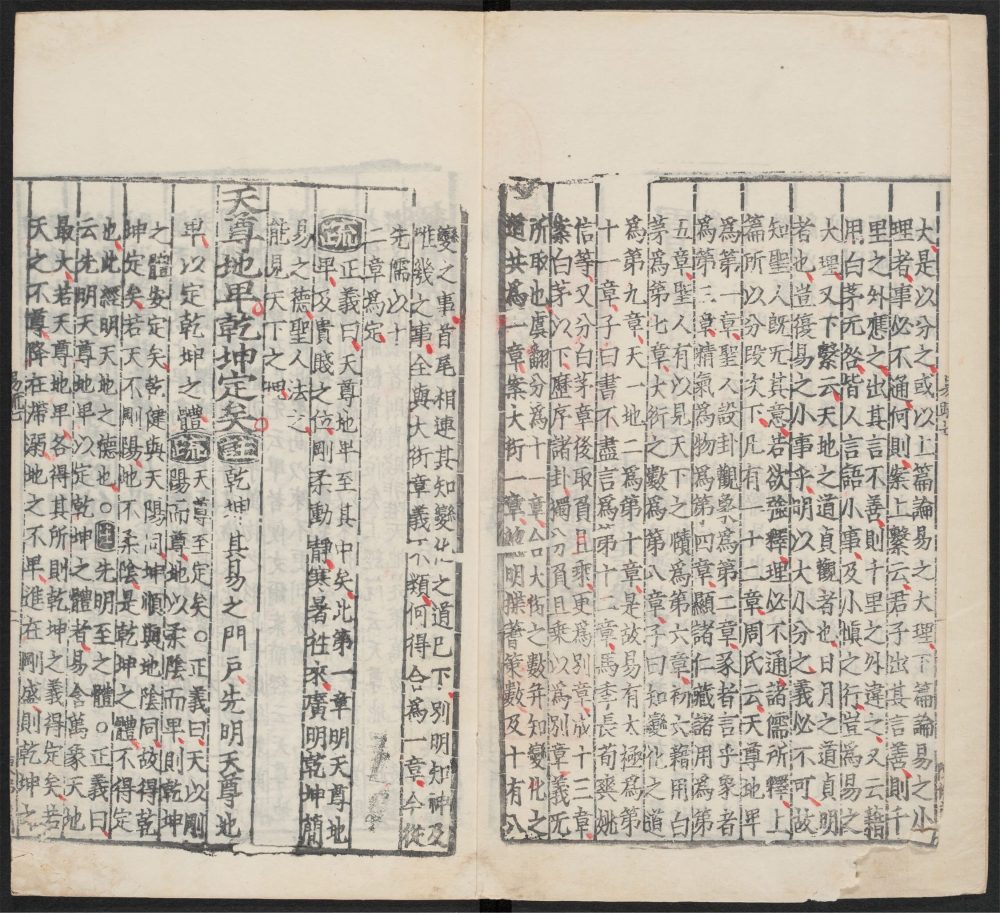 大是以分之或以上篇論易之大理下篇論易之小
理者事必不通何則案上繫云君子出其言善則千
里之外應之出其言不善則千里之外違之又云藉
用白茅无咎皆人言語小事及小慎之行豈為易之
大理又下繫云天地之道貞觀者也日月之道貞明
者也豈復易之小事乎明以大小分之義必不可故
知聖人既无其意若欲強釋理必不通諸儒所釋上
篇所以分段次下凡有一十二章周氏云天尊地卑
為第一章聖人設卦觀象為第二章彖者言乎象者
為第三章精氣為物為第四章顯諸仁藏諸用為第
五章聖人有以見天下之賾為第六章初六藉用白
茅為第七章大衍之數為第八章子曰知變化之道
為第九章天一地二為第十章是故易有太極為第
十一章子曰書不盡言為第十二章馬季長荀爽姚
信等又分白茅章後取負且乗更為別章成十三章
案白茅以下歷序諸卦獨分負且乗以為別章義无
所取也虞翻分為十一章合大衍之數并知變化之
道共為一章案大衍一章的明揲蓍策數及十有八
變之事首尾相連其知變化之道已下別明知神及
唯幾之事全與大衍章義不類何得合為一章今從
先儒以十
二章為定
疏正義曰天尊地卑至其中矣此第一章明天尊地
卑及貴賤之位剛柔動靜寒暑往來廣明乾坤簡
易之德聖人法之
能見天下之理
天尊地卑乾坤定矣注乾坤其易之門戶先明天尊地
卑以定乾坤之體疏天尊至定矣○正義曰天以剛
陽而尊地以柔陰而卑則乾坤
之體安定矣乾健與天陽同坤順與地陰同故得乾
坤定矣若天不剛陽地不柔陰是乾坤之體不得定
也此經明天地之德也○注先明至之體○正義曰
云先明天尊地卑以定乾坤之體者易含萬象天地
最大若天尊地卑各得其所則乾坤之義得定矣若
天之不尊降在滯溺地之不卑進在剛盛則乾坤之